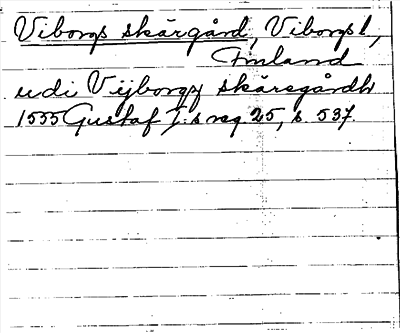 Viborgs skärgård, Viborgs l.,
Finland
udi Vijborgz skärsgårdh
1555 Gustaf I:s reg 25, s. 537.